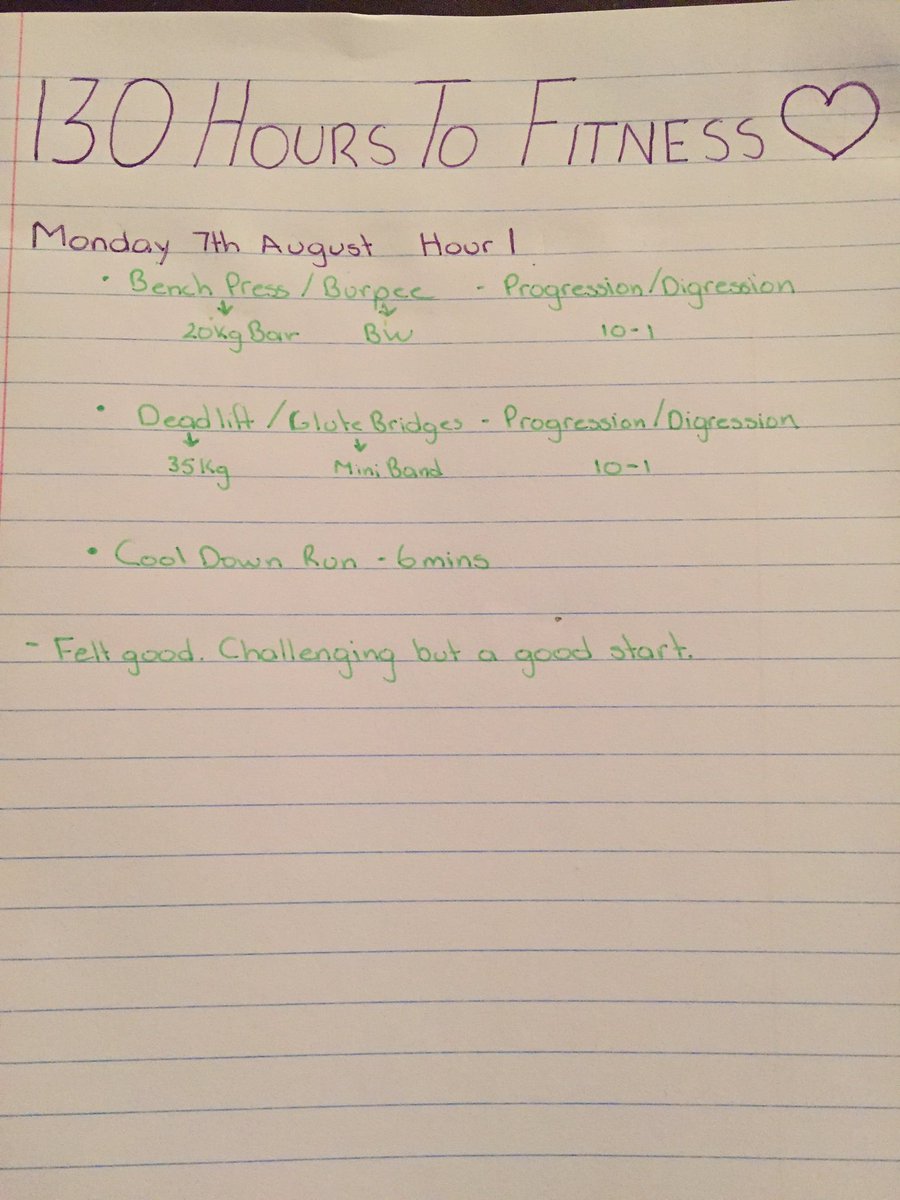 130 HOURS TO FITNESS
Monday 7th August Hour 1
• Bench Press / Burpee - Progression/Digression
20kg Bar BW 10-1
• Deadlift / Glute Bridges - Progression/Digression
35kg Mini Band 10-1
• Cool Down Run - 6mins
- Felt good. Challenging but a good start.